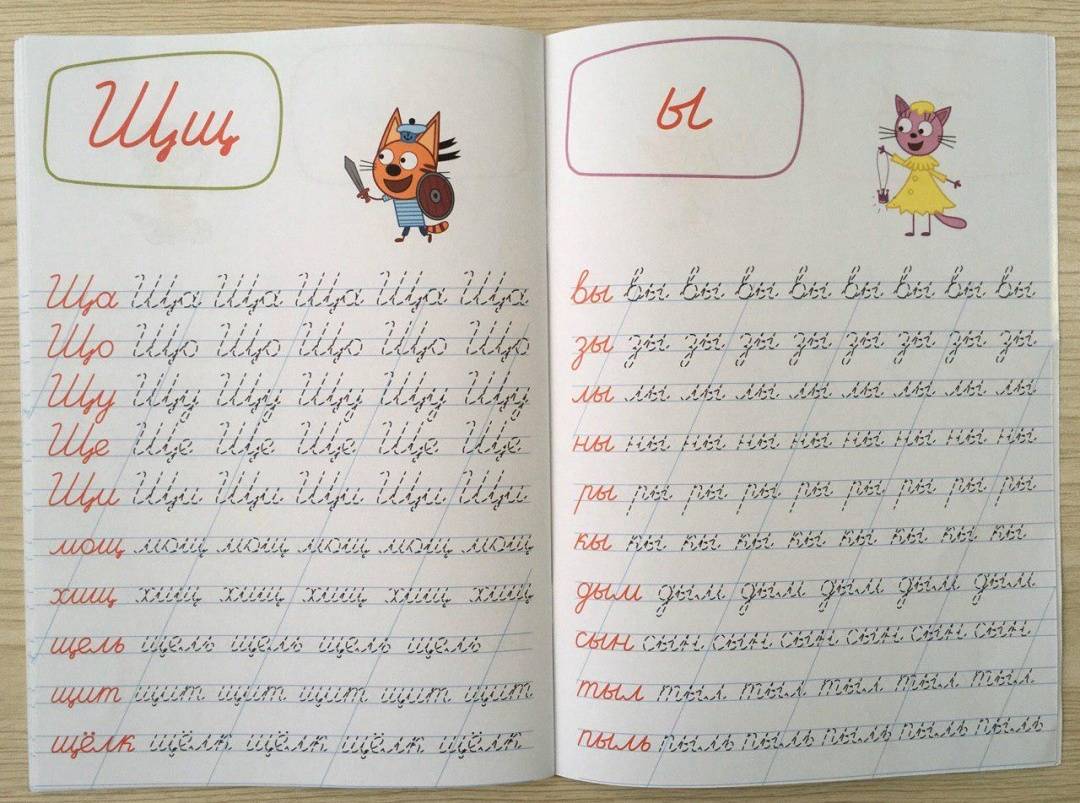 Щщ
Ща Ща Ща Ща Ща Ща
Що Що Що Що Що Що
Щу Щу Щу Щу Щу Щу
Ще Ще Ще Ще Ще Ще
Щи Щи Щи Щи Щи Щи
мощ мощ мощ мощ мощ мощ
хищ хищ хищ хищ хищ хищ
щель щель щель щель щель
щит щит щит щит щит щит
щёлк щёлк щёлк щёлк щёлк
ы
вы вы вы вы вы вы вы вы вы
зы зы зы зы зы зы зы зы зы
лы лы лы лы лы лы лы лы лы
ны ны ны ны ны ны ны ны ны
ры ры ры ры ры ры ры ры ры
кы кы кы кы кы кы кы кы кы
дым дым дым дым дым дым
сын сын сын сын сын сын сын
тыл тыл тыл тыл тыл тыл
пыль пыль пыль пыль пыль пыль